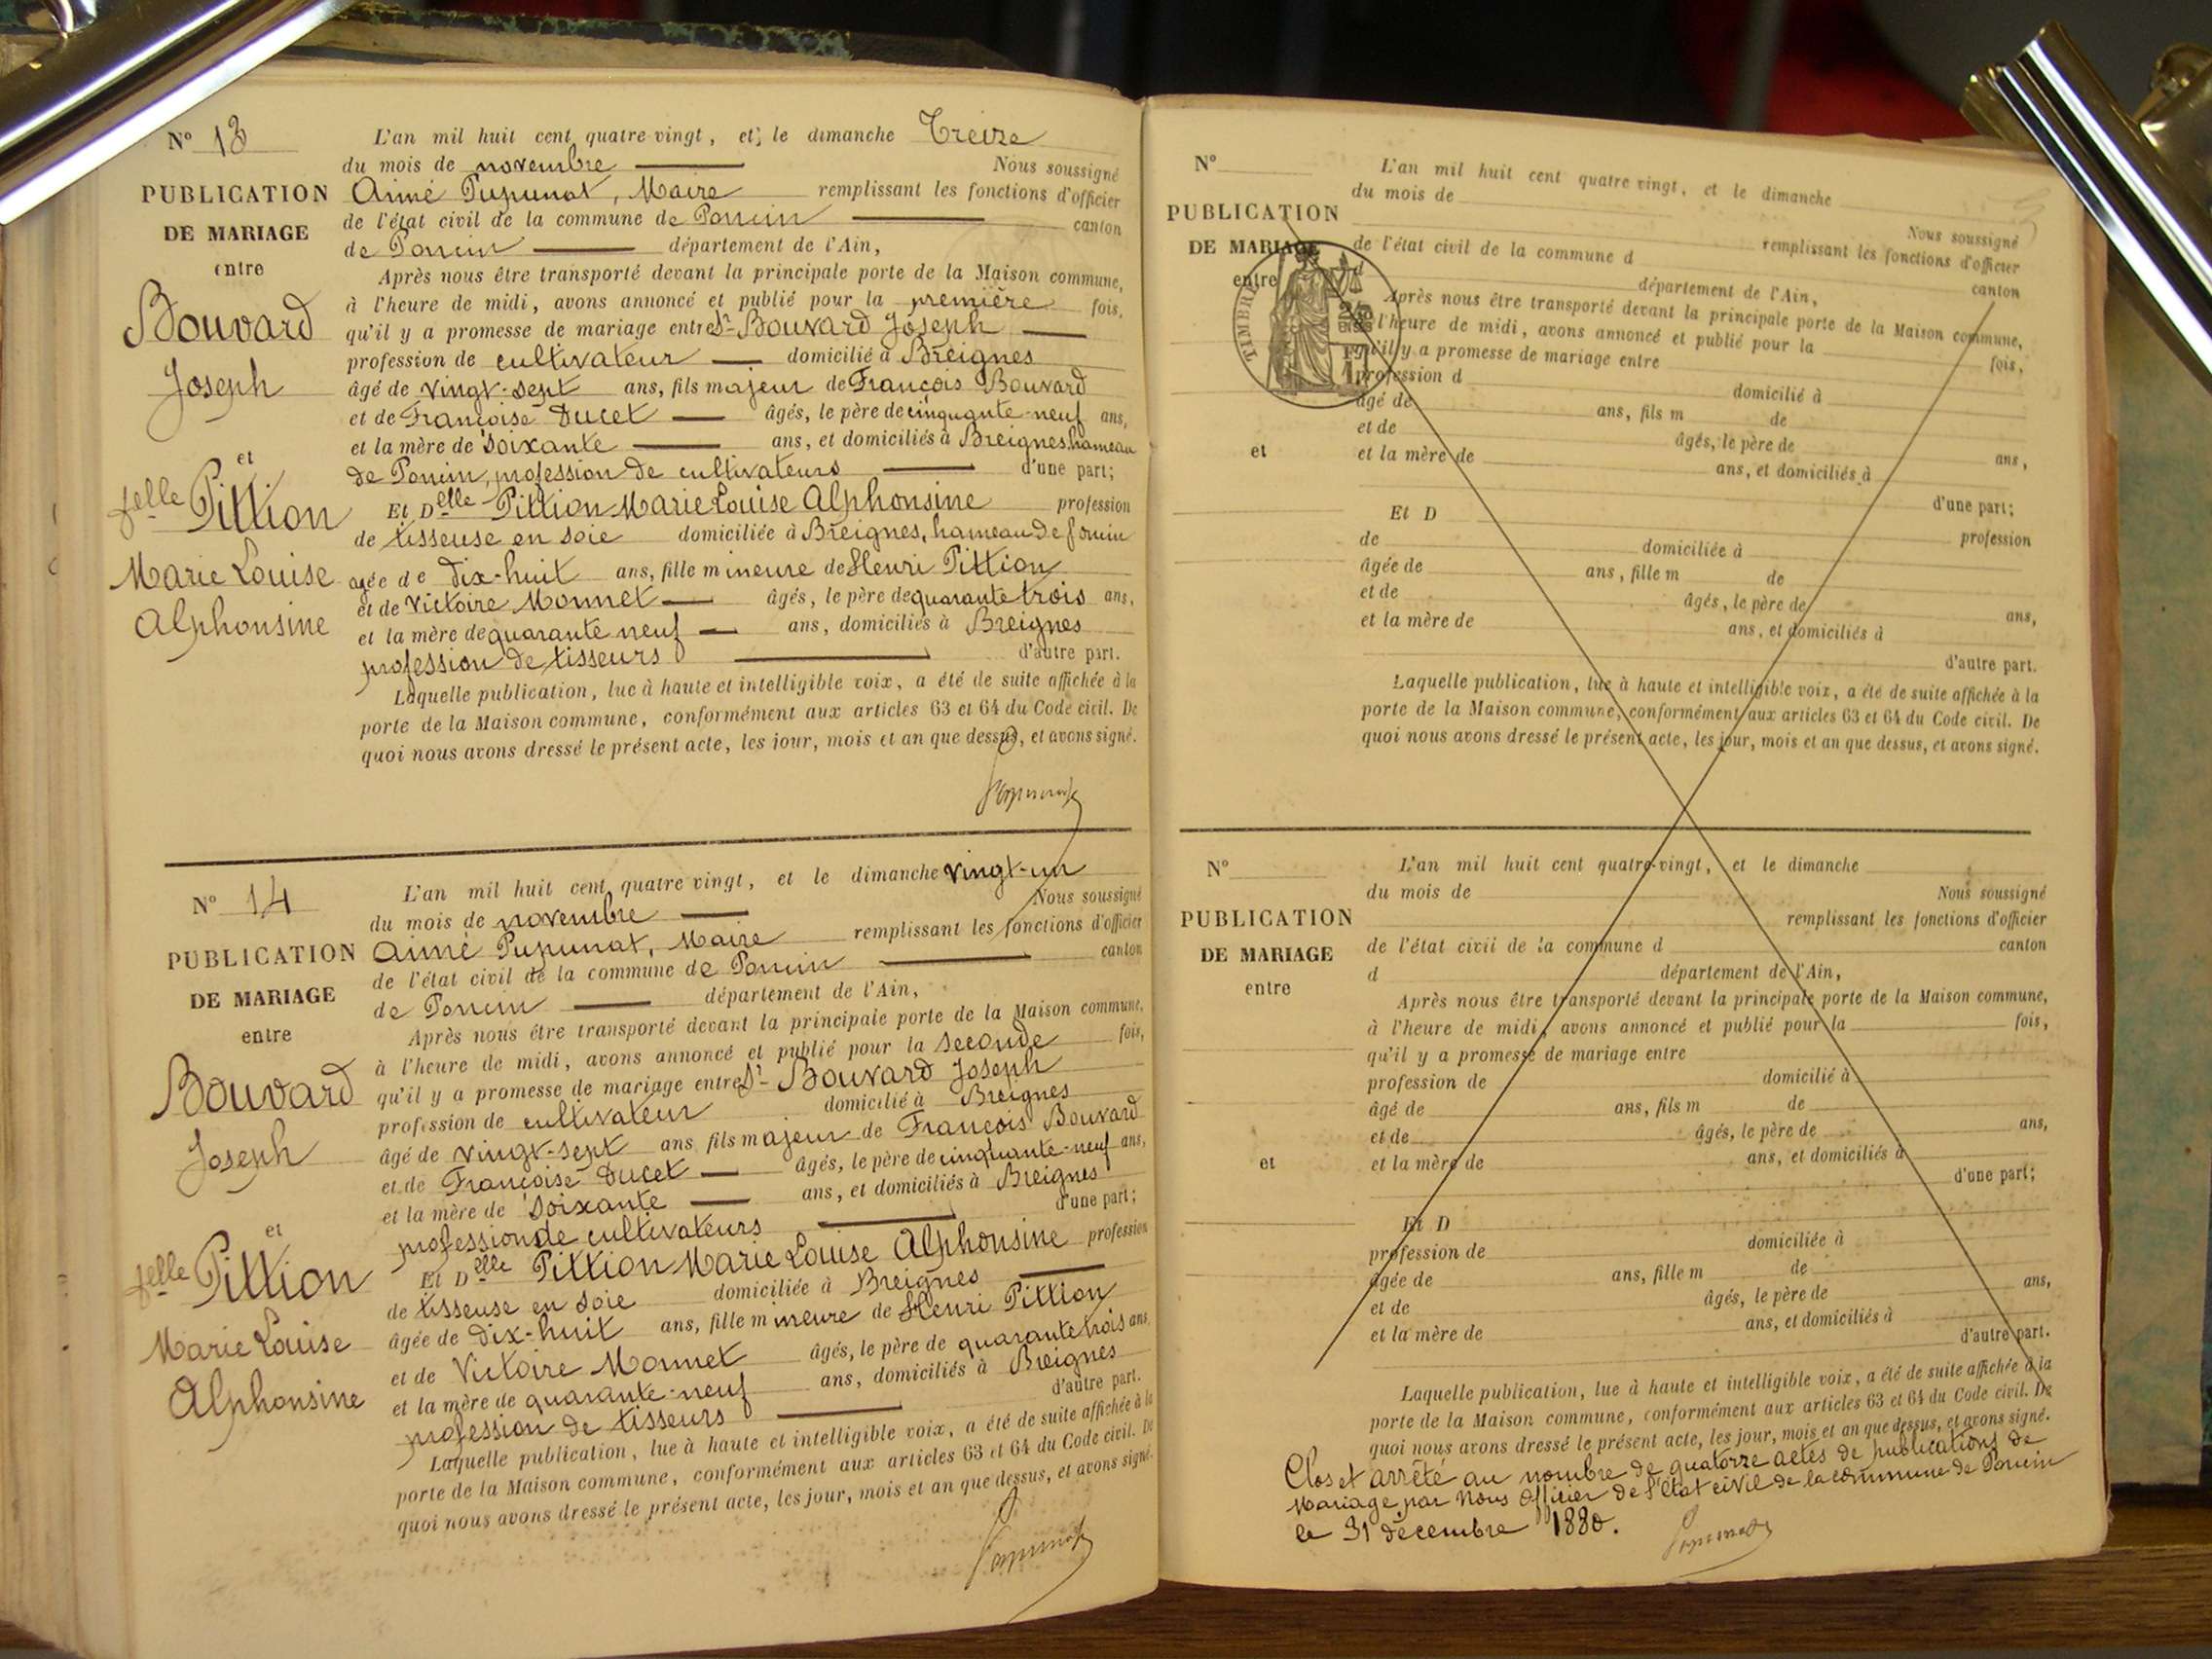 N° 13
PUBLICATION
DE MARIAGE
entre
Bouvard
Joseph
et
felle Pittion
Marie Louise
Alphonsine
L'an mil huit cent quatre-vingt, et le dimanche Treize
du mois de novembre Nous soussigné
Aimé Pupunat, Maire remplissant les fonctions d'officier
de l'état civil de la commune de Poncin canton
de Poncin département de l'Ain,
Après nous être transporté devant la principale porte de la Maison commune,
à l'heure de midi, avons annoncé et publié pour la première fois,
qu'il y a promesse de mariage entre Sr Bouvard Joseph
profession de cultivateur domicilié à Breignes
âgé de vingt-sept ans, fils majeur de François Bouvard
et de Françoise Ducet âgés, le père de cinquante-neuf ans,
et la mère de soixante ans, et domiciliés à Breignes hameau
de Poncin, profession de cultivateurs d'une part;
Et Delle Pittion Marie Louise Alphonsine profession
de tisseuse en soie domiciliée à Breignes, hameau de Poncin
agée de dix-huit ans, fille mineure de Henri Pittion
et de Victoire Monnet âgés, le père de quarante trois ans,
et la mère de quarante neuf ans, domiciliés à Breignes
profession de tisseurs d'autre part.
Laquelle publication, lue à haute et intelligible voix, a été de suite affichée à la
porte de la Maison commune, conformément aux articles 63 et 64 du Code civil. De
quoi nous avons dressé le présent acte, les jour, mois et an que dessus, et avons signé.
Pupunat
N° 14
PUBLICATION
DE MARIAGE
entre
Bouvard
Joseph
et
felle Pittion
Marie Louise
Alphonsine
L'an mil huit cent quatre vingt, et le dimanche vingt-un
du mois de novembre Nous soussigné
Aimé Pupunat, Maire remplissant les fonctions d'officier
de l'état civil de la commune de Poncin canton
de Poncin département de l'Ain,
Après nous être transporté devant la principale porte de la Maison commune,
à l'heure de midi, avons annoncé et publié pour la seconde fois,
qu'il y a promesse de mariage entre Sr Bouvard Joseph
profession de cultivateur domicilié à Breignes
âgé de vingt-sept ans fils majeur de François Bouvard
et de Françoise Ducet âgés, le père de cinquante-neuf ans,
et la mère de soixante ans, et domiciliés à Breignes
profession de cultivateurs d'une part;
Et Delle Pittion Marie Louise Alphonsine profession
de tisseuse en soie domiciliée à Breignes
âgée de dix-huit ans, fille mineure de Henri Pittion
et de Victoire Monnet âgés, le père de quarante trois ans
et la mère de quarante-neuf ans, domiciliés à Breignes
profession de tisseurs d'autre part.
Laquelle publication, lue à haute et intelligible voix, a été de suite affichée à la
porte de la Maison commune, conformément aux articles 63 et 64 du Code civil. De
quoi nous avons dressé le présent acte, les jour, mois et an que dessus, et avons signé.
Pupunat
N°
PUBLICATION
DE MARIAGE
entre
et
TIMBRE
L'an mil huit cent quatre vingt, et le dimanche
du mois de Nous soussigné
remplissant les fonctions d'officier
de l'état civil de la commune d canton
d département de l'Ain,
Après nous être transporté devant la principale porte de la Maison commune,
l'heure de midi, avons annoncé et publié pour la fois,
qu'il y a promesse de mariage entre
profession d domicilié à
âgé de ans, fils m de
et de âgés, le père de ans,
et la mère de ans, et domiciliés à
d'une part;
Et D profession
de domiciliée à
âgée de ans, fille m de
et de âgés, le père de ans,
et la mère de ans, et domiciliés à
d'autre part.
Laquelle publication, lue à haute et intelligible voix, a été de suite affichée à la
porte de la Maison commune, conformément aux articles 63 et 64 du Code civil. De
quoi nous avons dressé le présent acte, les jour, mois et an que dessus, et avons signé.
N°
PUBLICATION
DE MARIAGE
entre
et
L'an mil huit cent quatre-vingt, et le dimanche
du mois de Nous soussigné
remplissant les fonctions d'officier
de l'état civil de la commune d canton
d département de l'Ain,
Après nous être transporté devant la principale porte de la Maison commune,
à l'heure de midi, avons annoncé et publié pour la fois,
qu'il y a promesse de mariage entre
profession de domicilié à
âgé de ans, fils m de
et de âgés, le père de ans,
et la mère de ans, et domiciliés à
d'une part;
Et D
profession de domiciliée à
âgée de ans, fille m de
et de âgés, le père de ans,
et la mère de ans, et domiciliés à
d'autre part.
Laquelle publication, lue à haute et intelligible voix, a été de suite affichée à la
porte de la Maison commune, conformément aux articles 63 et 64 du Code civil. De
quoi nous avons dressé le présent acte, les jour, mois et an que dessus, et avons signé.
Clos et arrêté au nombre de quatorze actes de publications de
Mariage par Nous Officier de l'état civil de la commune de Poncin
le 31 décembre 1880.
Pupunat